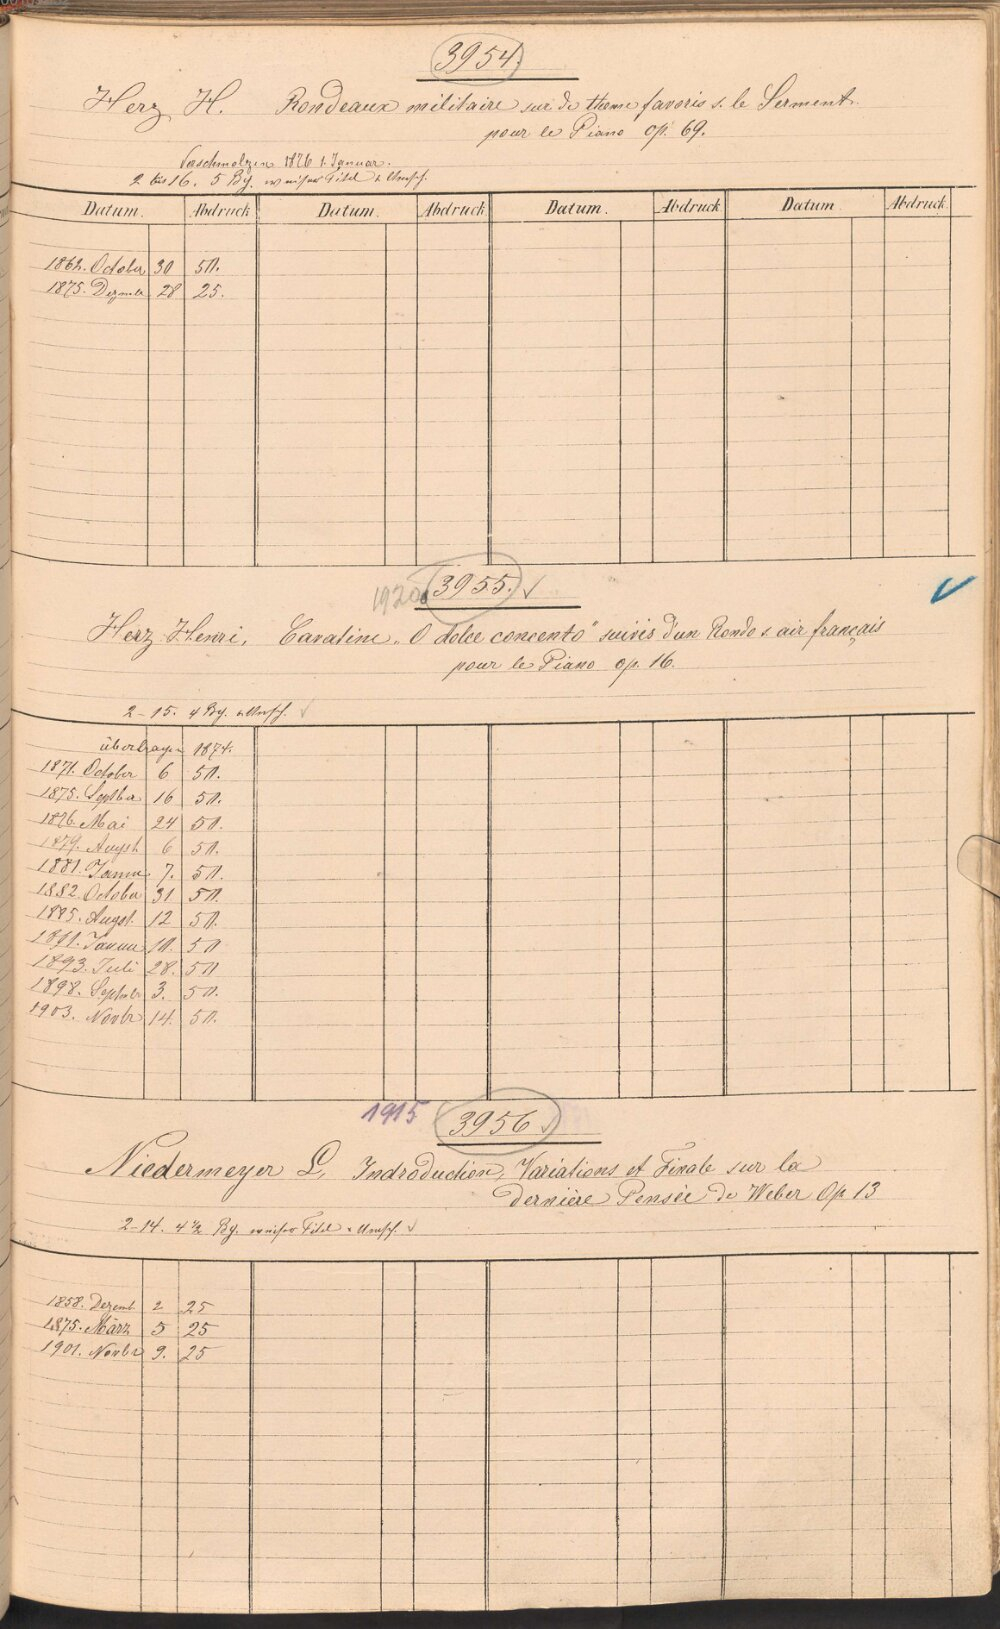 3954.
Herz H. Rondeaux militaire sur de theme favoris s. le Serment.
pour le Piano op. 69.
1876 1. Januar.
2 bis 16. 5 Bg. weisser Titel u Umsch.
Datum. Abdruck Datum. Abdruck Datum. Abdruck Datum Abdruck
1862. October 30 50.
1875. Dezemb 28 25.
1920 3955. ✓
Herz Henri, Cavatine „O dolce concento" suivis d'un Rondo s. air français
pour le Piano op. 16.
2–15. 4 Bg. u Umsch. ✓
übertragen 1874.
1871. October 6 50.
1875. Septber 16 50.
1876. Mai 24 50.
1879. Augst 6 50.
1881. Janua 7. 50.
1882. October 31 50.
1885. Augst. 12 50.
1891. Janua 10. 50
1893. Juli 28. 50
1898. Septembr 3. 50.
1903. Novbr 14. 50.
1915 3956 ✓
Niedermeyer L, Indroduction, Variations et Finale sur la
dernière Pensée de Weber Op 13
2–14. 4½ Bg. weisser Titel u Umsch. ✓
1858. Dezemb 2 25
1875. März 5 25
1901. Novbr 9. 25